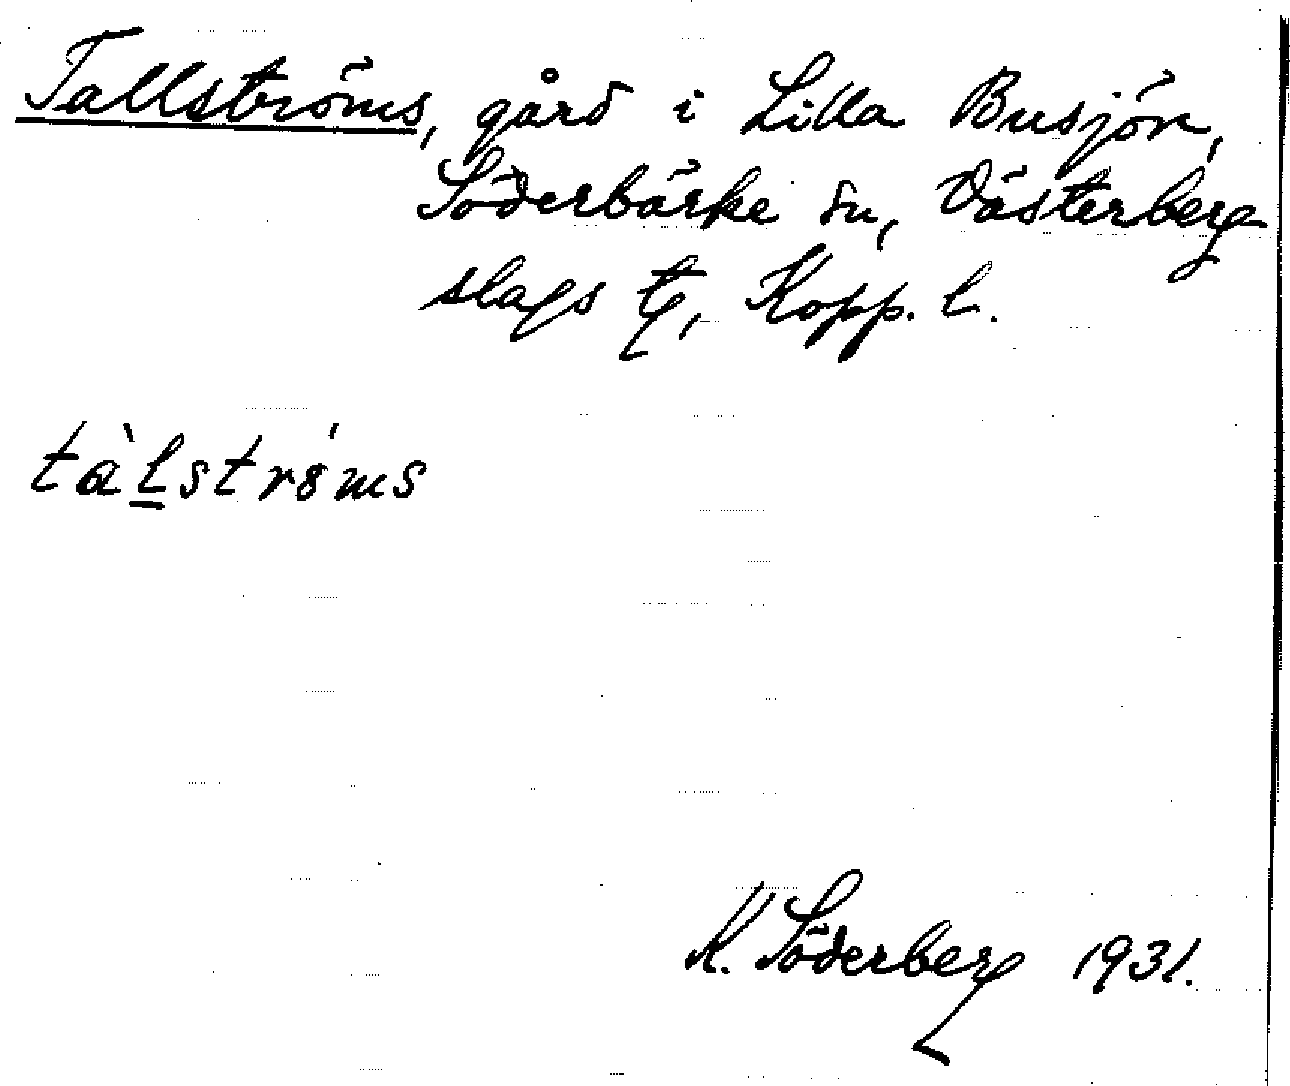 Tallströms, gård i Lilla Busjön,
Söderbärke sn, Västerberg
slags tg, Kopp. l.
tàl̲strö́ms
K. Söderberg 1931.